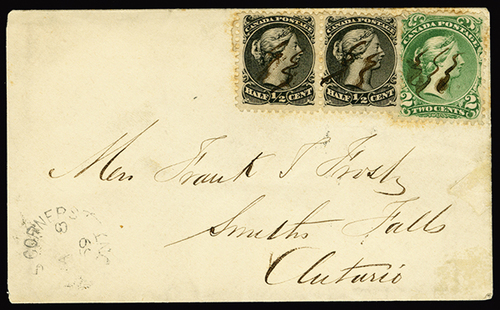 CANADA POSTAGE CANADA POSTAGE CANADA POSTAGE
HALF ½ CENT HALF ½ CENT 2 TWO CENTS 2
Mrs Frank T Frost
Smiths Falls
Ontario
CORNERS
69